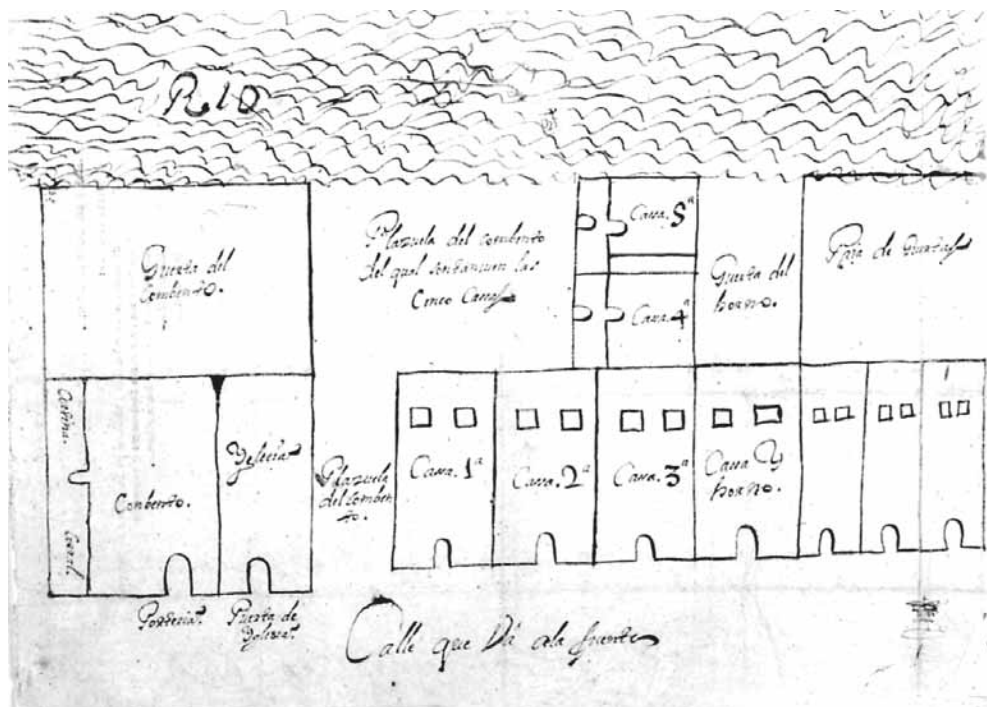 RIO
Guerta del
Combento.
Plazuela del combento
del qual
Cinco Cassas
Cassa. 5ª
Cassa. 4ª
Guerta del
horno.
Raia de Guertas
Cozina.
Corral.
Conbento.
Yglecia
Plazuela
del comben
to.
Cassa. 1ª
Cassa. 2ª
Cassa. 3ª
Cassa Y
horno.
Porteria
Puerta de
Yglecia
Calle que Dà ala fuente